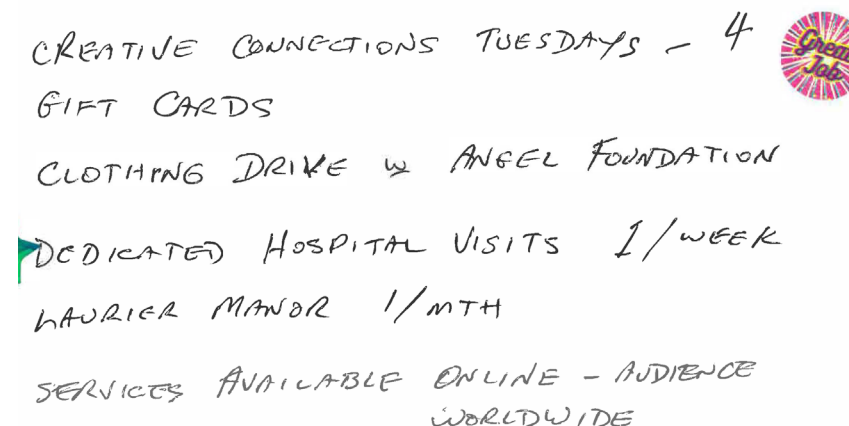 CREATIVE CONNECTIONS TUESDAYS - 4
Great Job
GIFT CARDS
CLOTHING DRIVE w ANGEL FOUNDATION
DEDICATED HOSPITAL VISITS 1/WEEK
LAURIER MANOR 1/MTH
SERVICES AVAILABLE ONLINE - AUDIENCE
WORLDWIDE